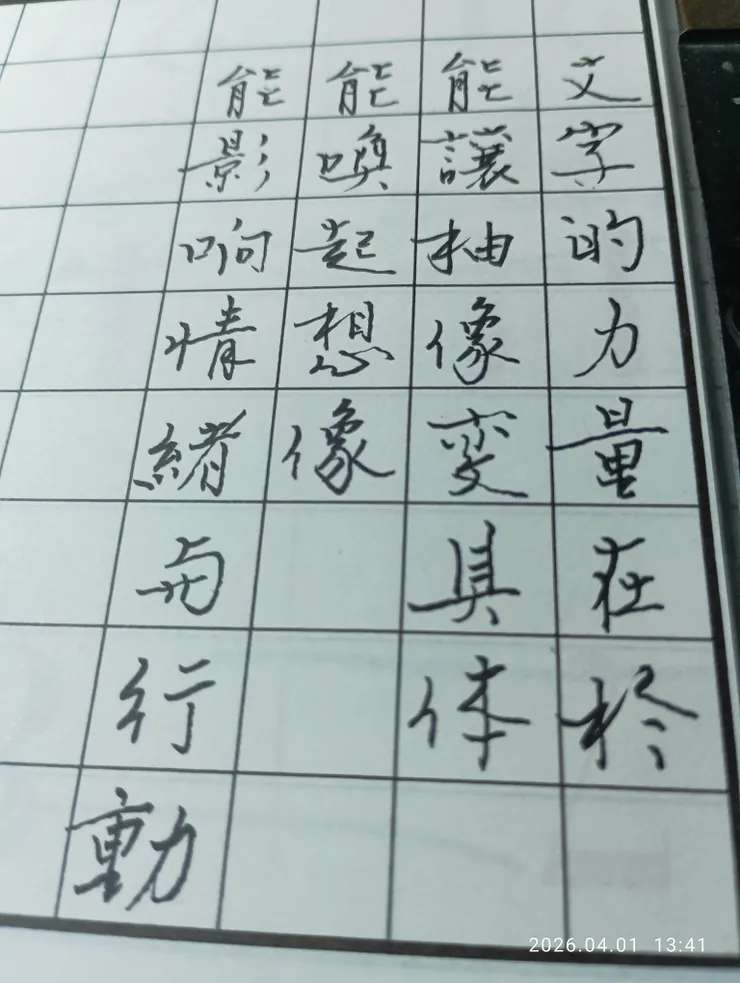 文字的力量在於
能讓抽像變具体
能喚起想像
能影响情緒与行動
2026.04.01 13:41